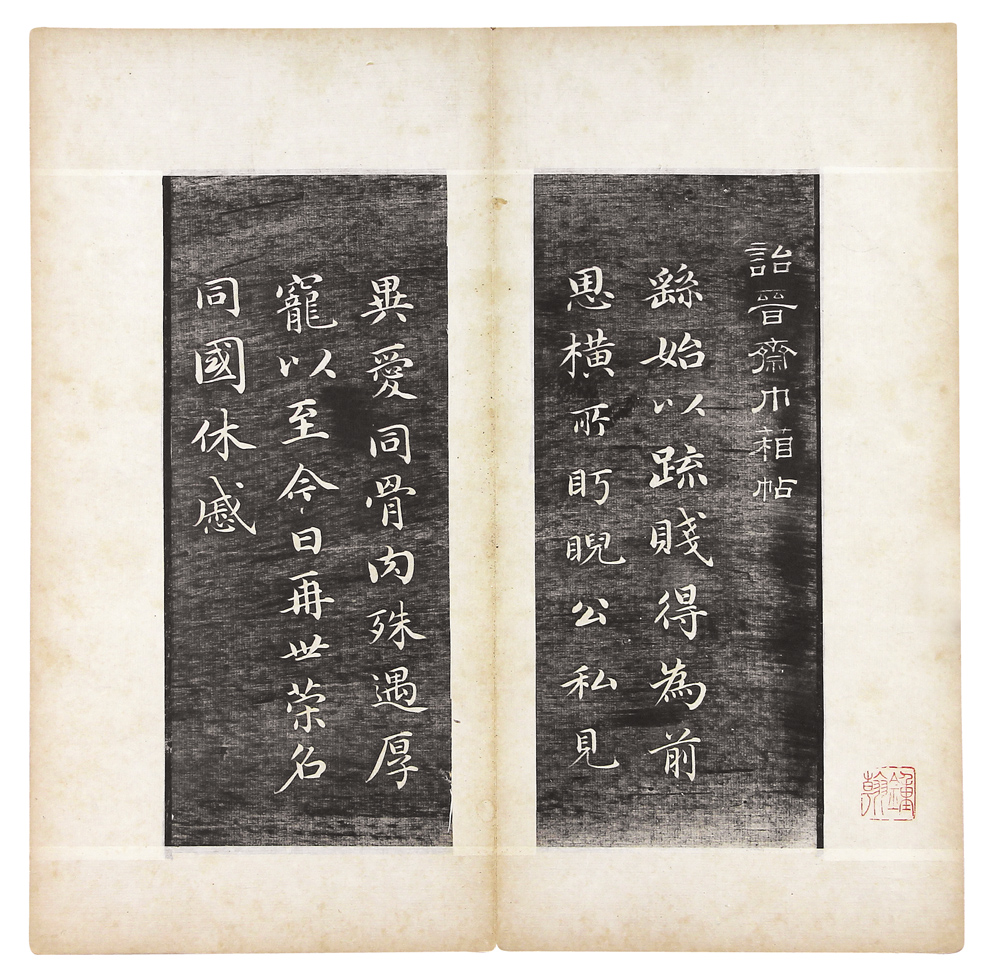 詒晉齋巾葙帖
繇始以疏賤得為前
恩橫所眄睨公私見
異愛同骨肉殊遇厚
寵以至今日再世榮名
同國休慼
鍾翰